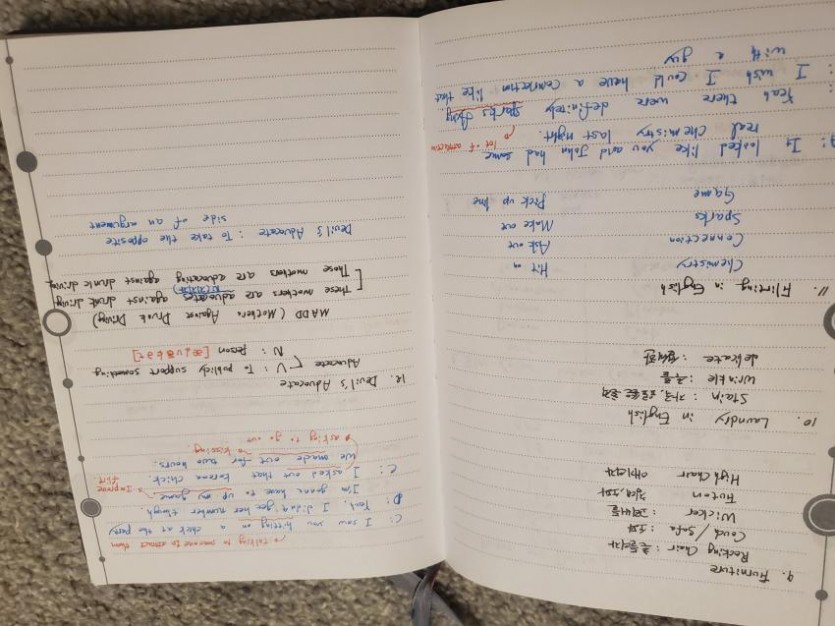 9. Furniture
Rocking Chair : 흔들의자
Couch / Sofa : 소파
Wicker : 고리버들
Futon
High Chair
10. Laundry in English
Stain : 자국,
Wrinkle : 주름
delicate : 섬세한
11. Flirting in English
Chemistry Hit on
Connection Ask out
Sparks Make out
Game Pick up line
A: It looked like you and John had some
real chemistry last night. lot of attraction
: Yeah there were definitely sparks flying
: I wish I could have a connection like that
with a guy
talking to someone to attract them
C: I saw you hitting on a chick at the party
D: Yeah, I didn't get her number though.
I'm gonna have to up my game Improve flirt.
C: I asked out that korean chick
We made out for two hours.
kissing
asking to go out
12. Devil's Advocate
Advocate V: To publicly support something
N: Person
MADD (Mothers Against Drunk Driving)
These mothers are advocates against drunk driving
These mothers are advocating against drunk driving
Devil's Advocate : To take the opposite
side of an argument